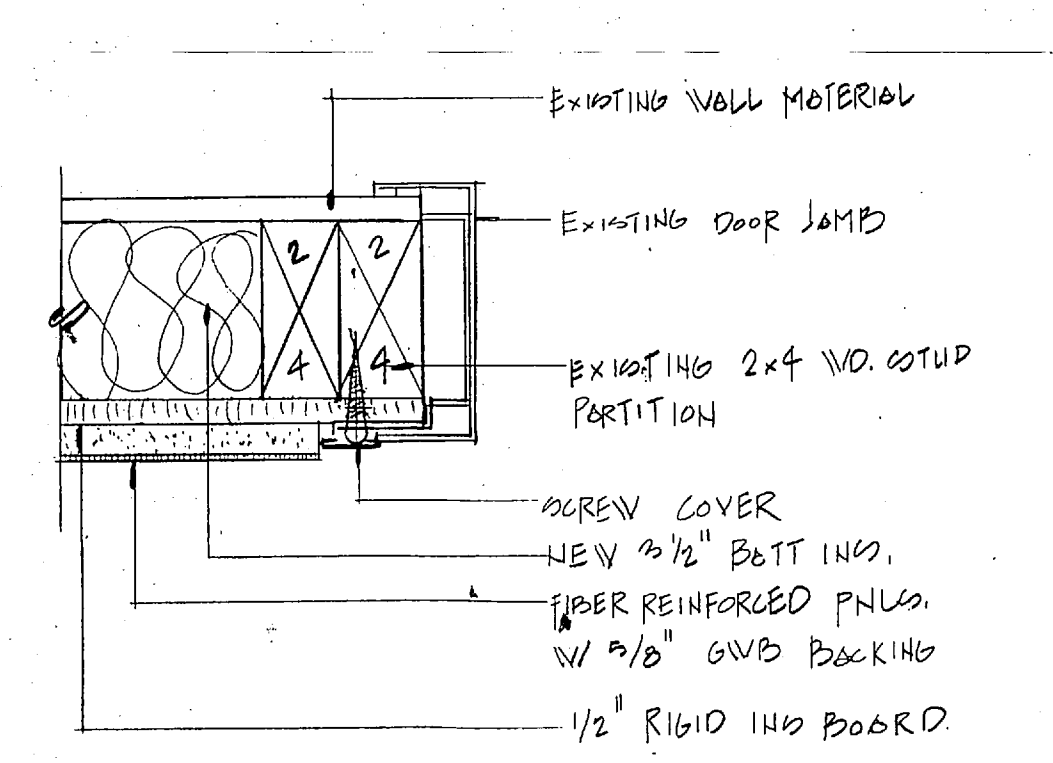 EXISTING WALL MATERIAL
EXISTING DOOR JAMB
2 2
4 4
EXISTING 2x4 WD. STUD
PARTITION
SCREW COVER
NEW 3 1/2" BATT INS.
FIBER REINFORCED PNLS.
W/ 5/8" GWB BACKING
1/2" RIGID INS BOARD.